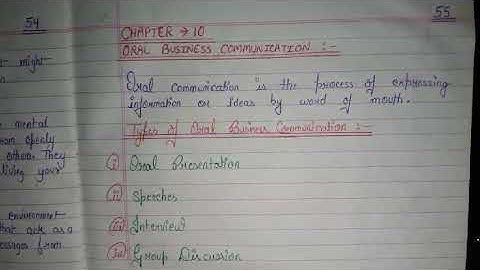 54
might
mental
openly
others. They
your
environment
that act as a
from
55
CHAPTER → 10
ORAL BUSINESS COMMUNICATION :-
Oral communication is the process of expressing
information or ideas by word of mouth.
Types of Oral Business Communication :-
(i) Oral Presentation
(ii) Speeches
(iii) Interview
(iv) Group Discussion